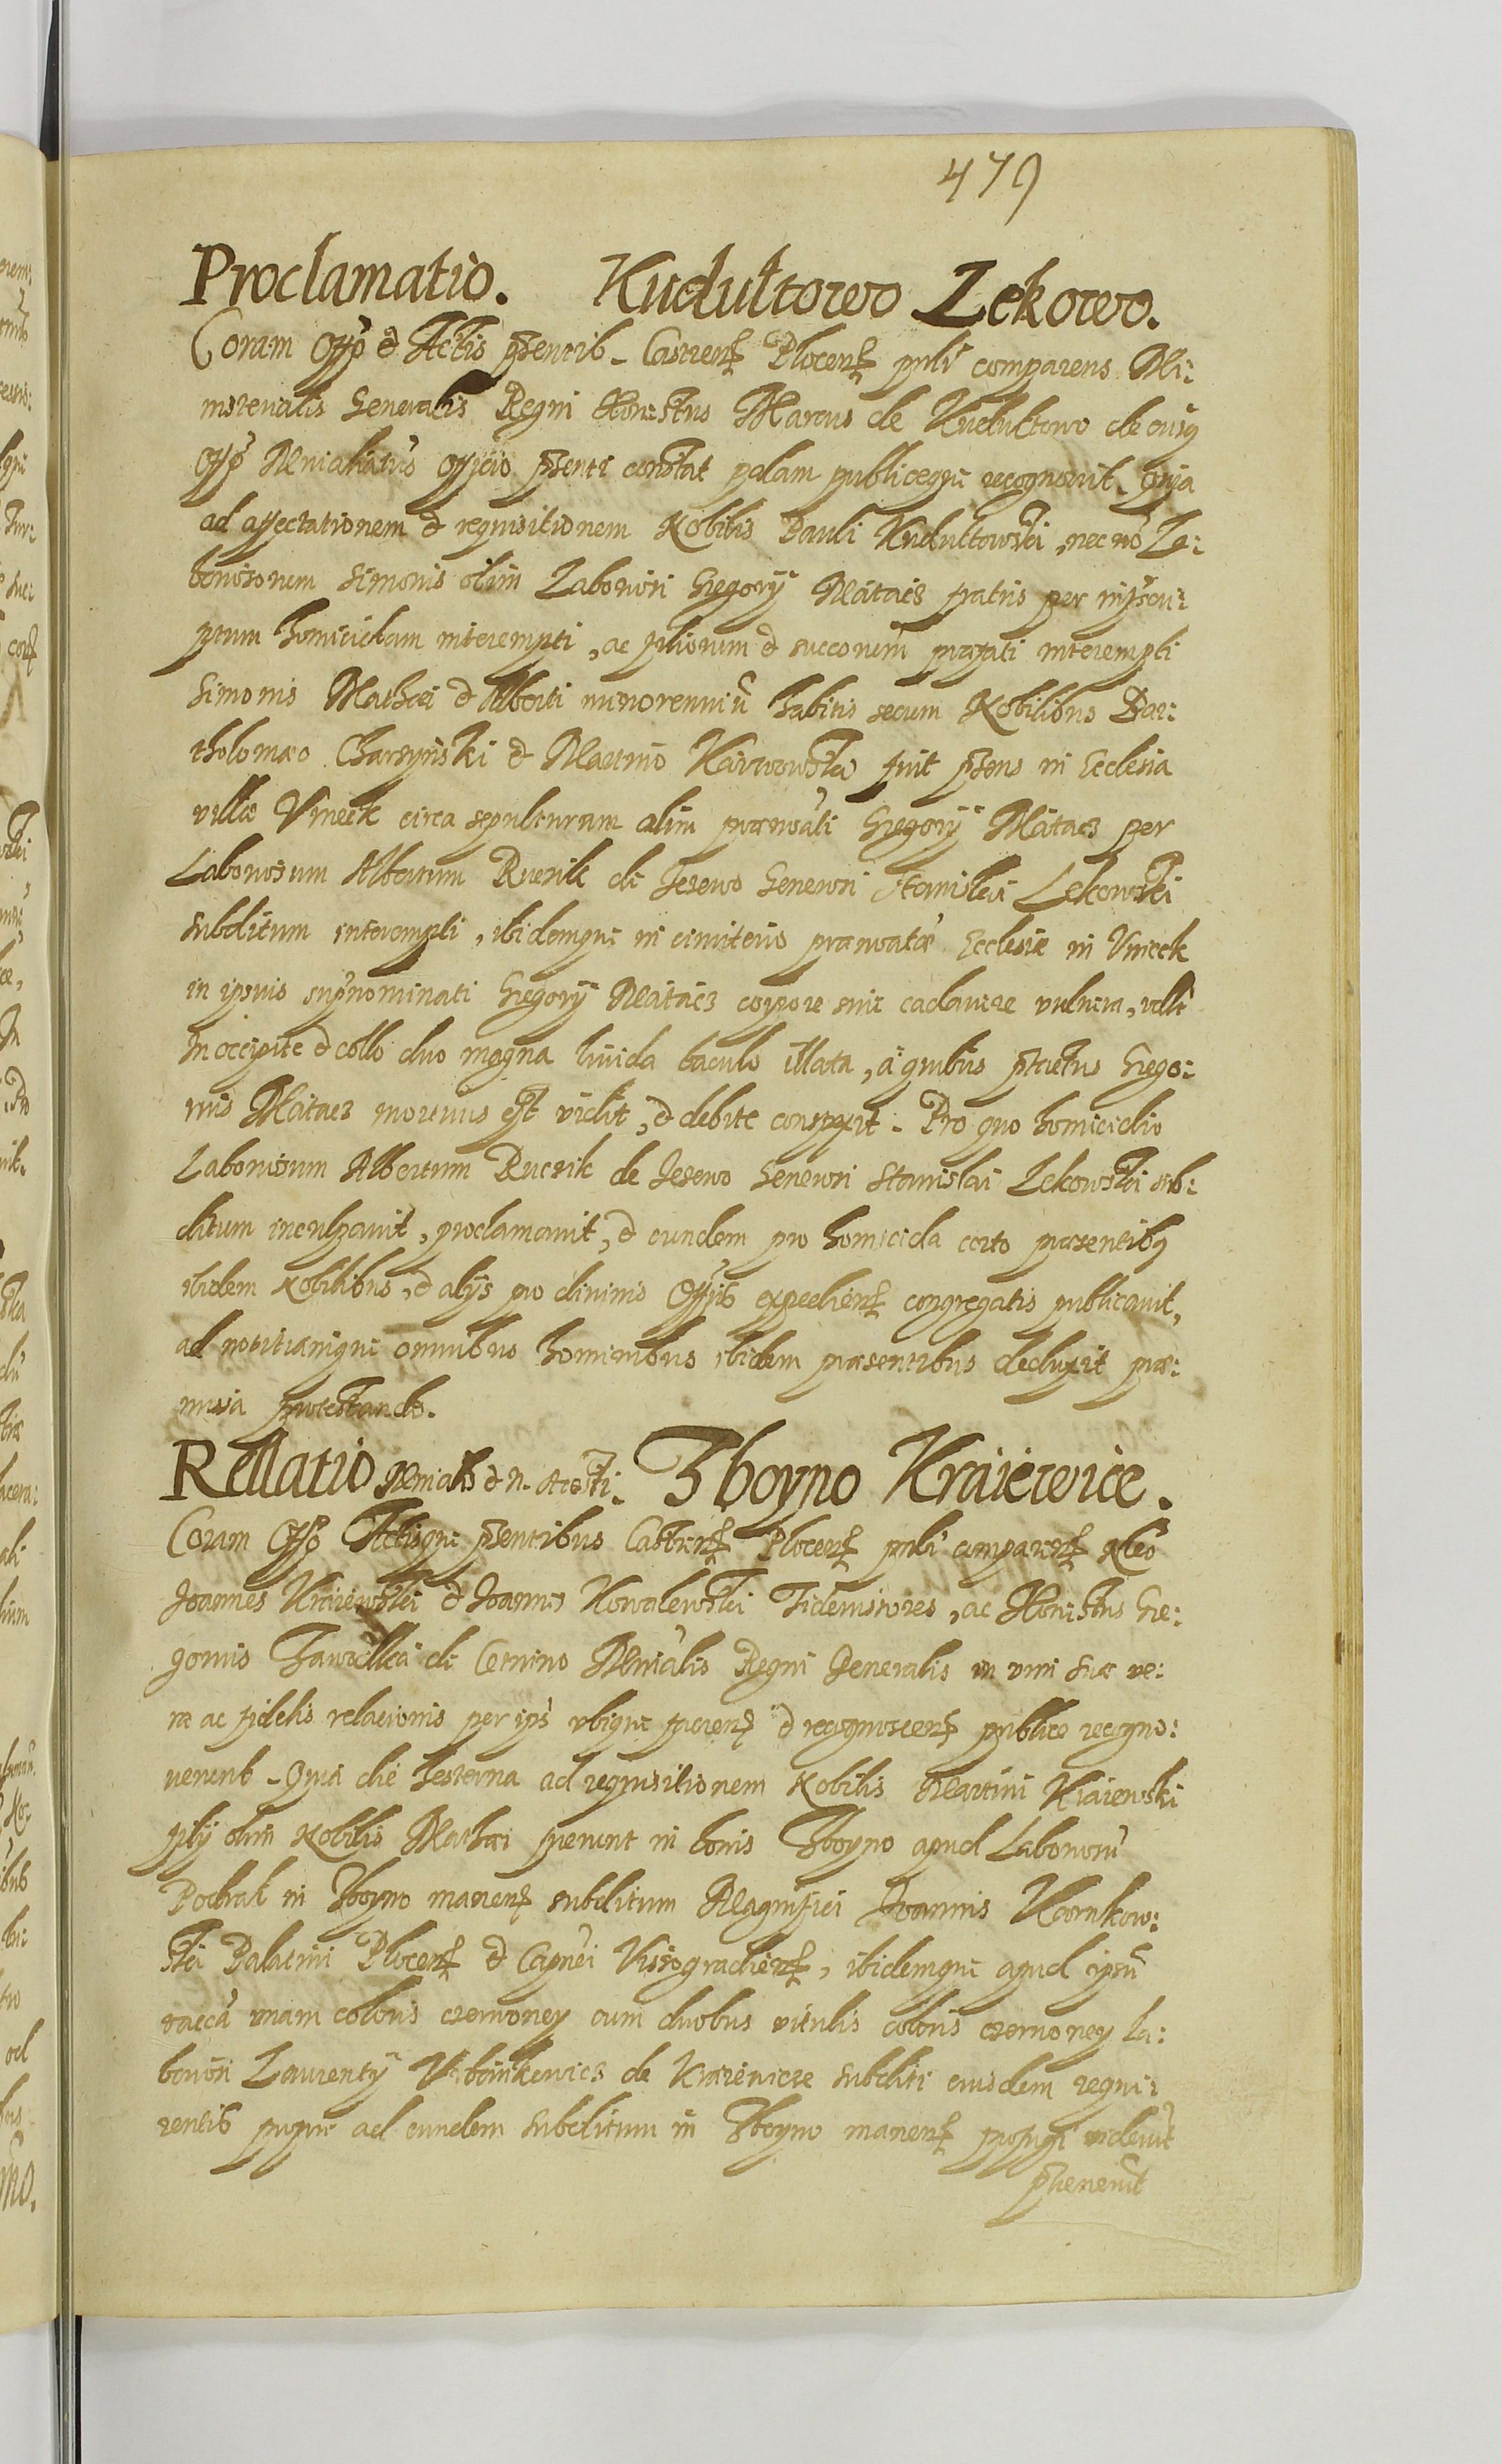 479
Proclamatio. Kudułtowo Lekowo.
Coram Offo et Actis pſentib. Castrenſ Plocenſ pnlr comparens Mi:
nisterialis Generalis Regni Honestus Marcus de Kudułtowo de cuiq
offo Mnialiatus officio pſenti constat palam publiceque recognouit. Quia
ad affectationem et requisitionem Nobilis Pauli Kudułtowski, nec no La:
boriosorum Simonis olim Laboriosi Gregorij Mataies fratris per
homicidam interempti, ac filiorum et succorum præfati interempti
Simonis Mathæi et Alberti minorenniu habitis secum Nobilibus Bar:
tholomæo Charzyński et Martino fuit pſens in Ecclesia
villæ Vnieck circa sepulturam olim prænoati Gregorij Mataies per
Laboriosum Albertum Rucsik de Jesewo Generosi Stanislai Lekowski
subditum interempti, ibidemque in cimiterio prænoatæ Ecclesiæ in Vnieck
in ipsius supnominati Gregorij Mataies corpore siue cadauere vulnera, vllt
In occipite et collo duo magna liuida baculo illata, a quibus pfactus Grego:
rius Mataies mortuus est vidit, et debite conspexit. Pro quo homicidio
Laboriosum Albertum Rucsik de Jesewo Generosi Stanislai Lekowski sub:
ditum inculpauit, proclamauit, et eundem pro homicida certo præsentibq
ibidem Nobilibus, et alijs pro diuinis Offijs expedienſ congregatis publicauit,
ad notitiamque omnibus hominibus ibidem præsentibus deduxit præ:
missa protestando.
Rellatio Mnialis et n. Zboyno Kraiewice.
Coram Offo Actisque pſentibus Castrenſ Plocenſ pnlr comparenſ
Joannes Kraiewski et Joannes Kowalewski Fidemissores, ac Honestus Gre:
gorius de Cetnino Mnialis Regni Generalis in vim suæ ve:
ræ ac fidelis relaționis per ips vbique facienſ et recognoscenſ publice recogno:
uerunt. Quia die hesterna ad requisitionem Nobilis Martini Kraiewski
filij olim Nobilis Mathæi fuerunt in bonis Zboyno apud Laboriosu
Pochrak in Zboyno manenſ subditum Magnifici Joannis Karnkow:
ski Palatini Plocenſ et Capnei Vissogradienſ, ibidemque apud ipsu
vacca vnam coloris czerwoney cum duobus vitulis coloris czerwoney La:
boriosi Laurentij Vrbankewics de Kraiewicze subditi eiusdem requi:
rentis fugiue ad eundem subditum in Zboyno manenſ profugi viderut